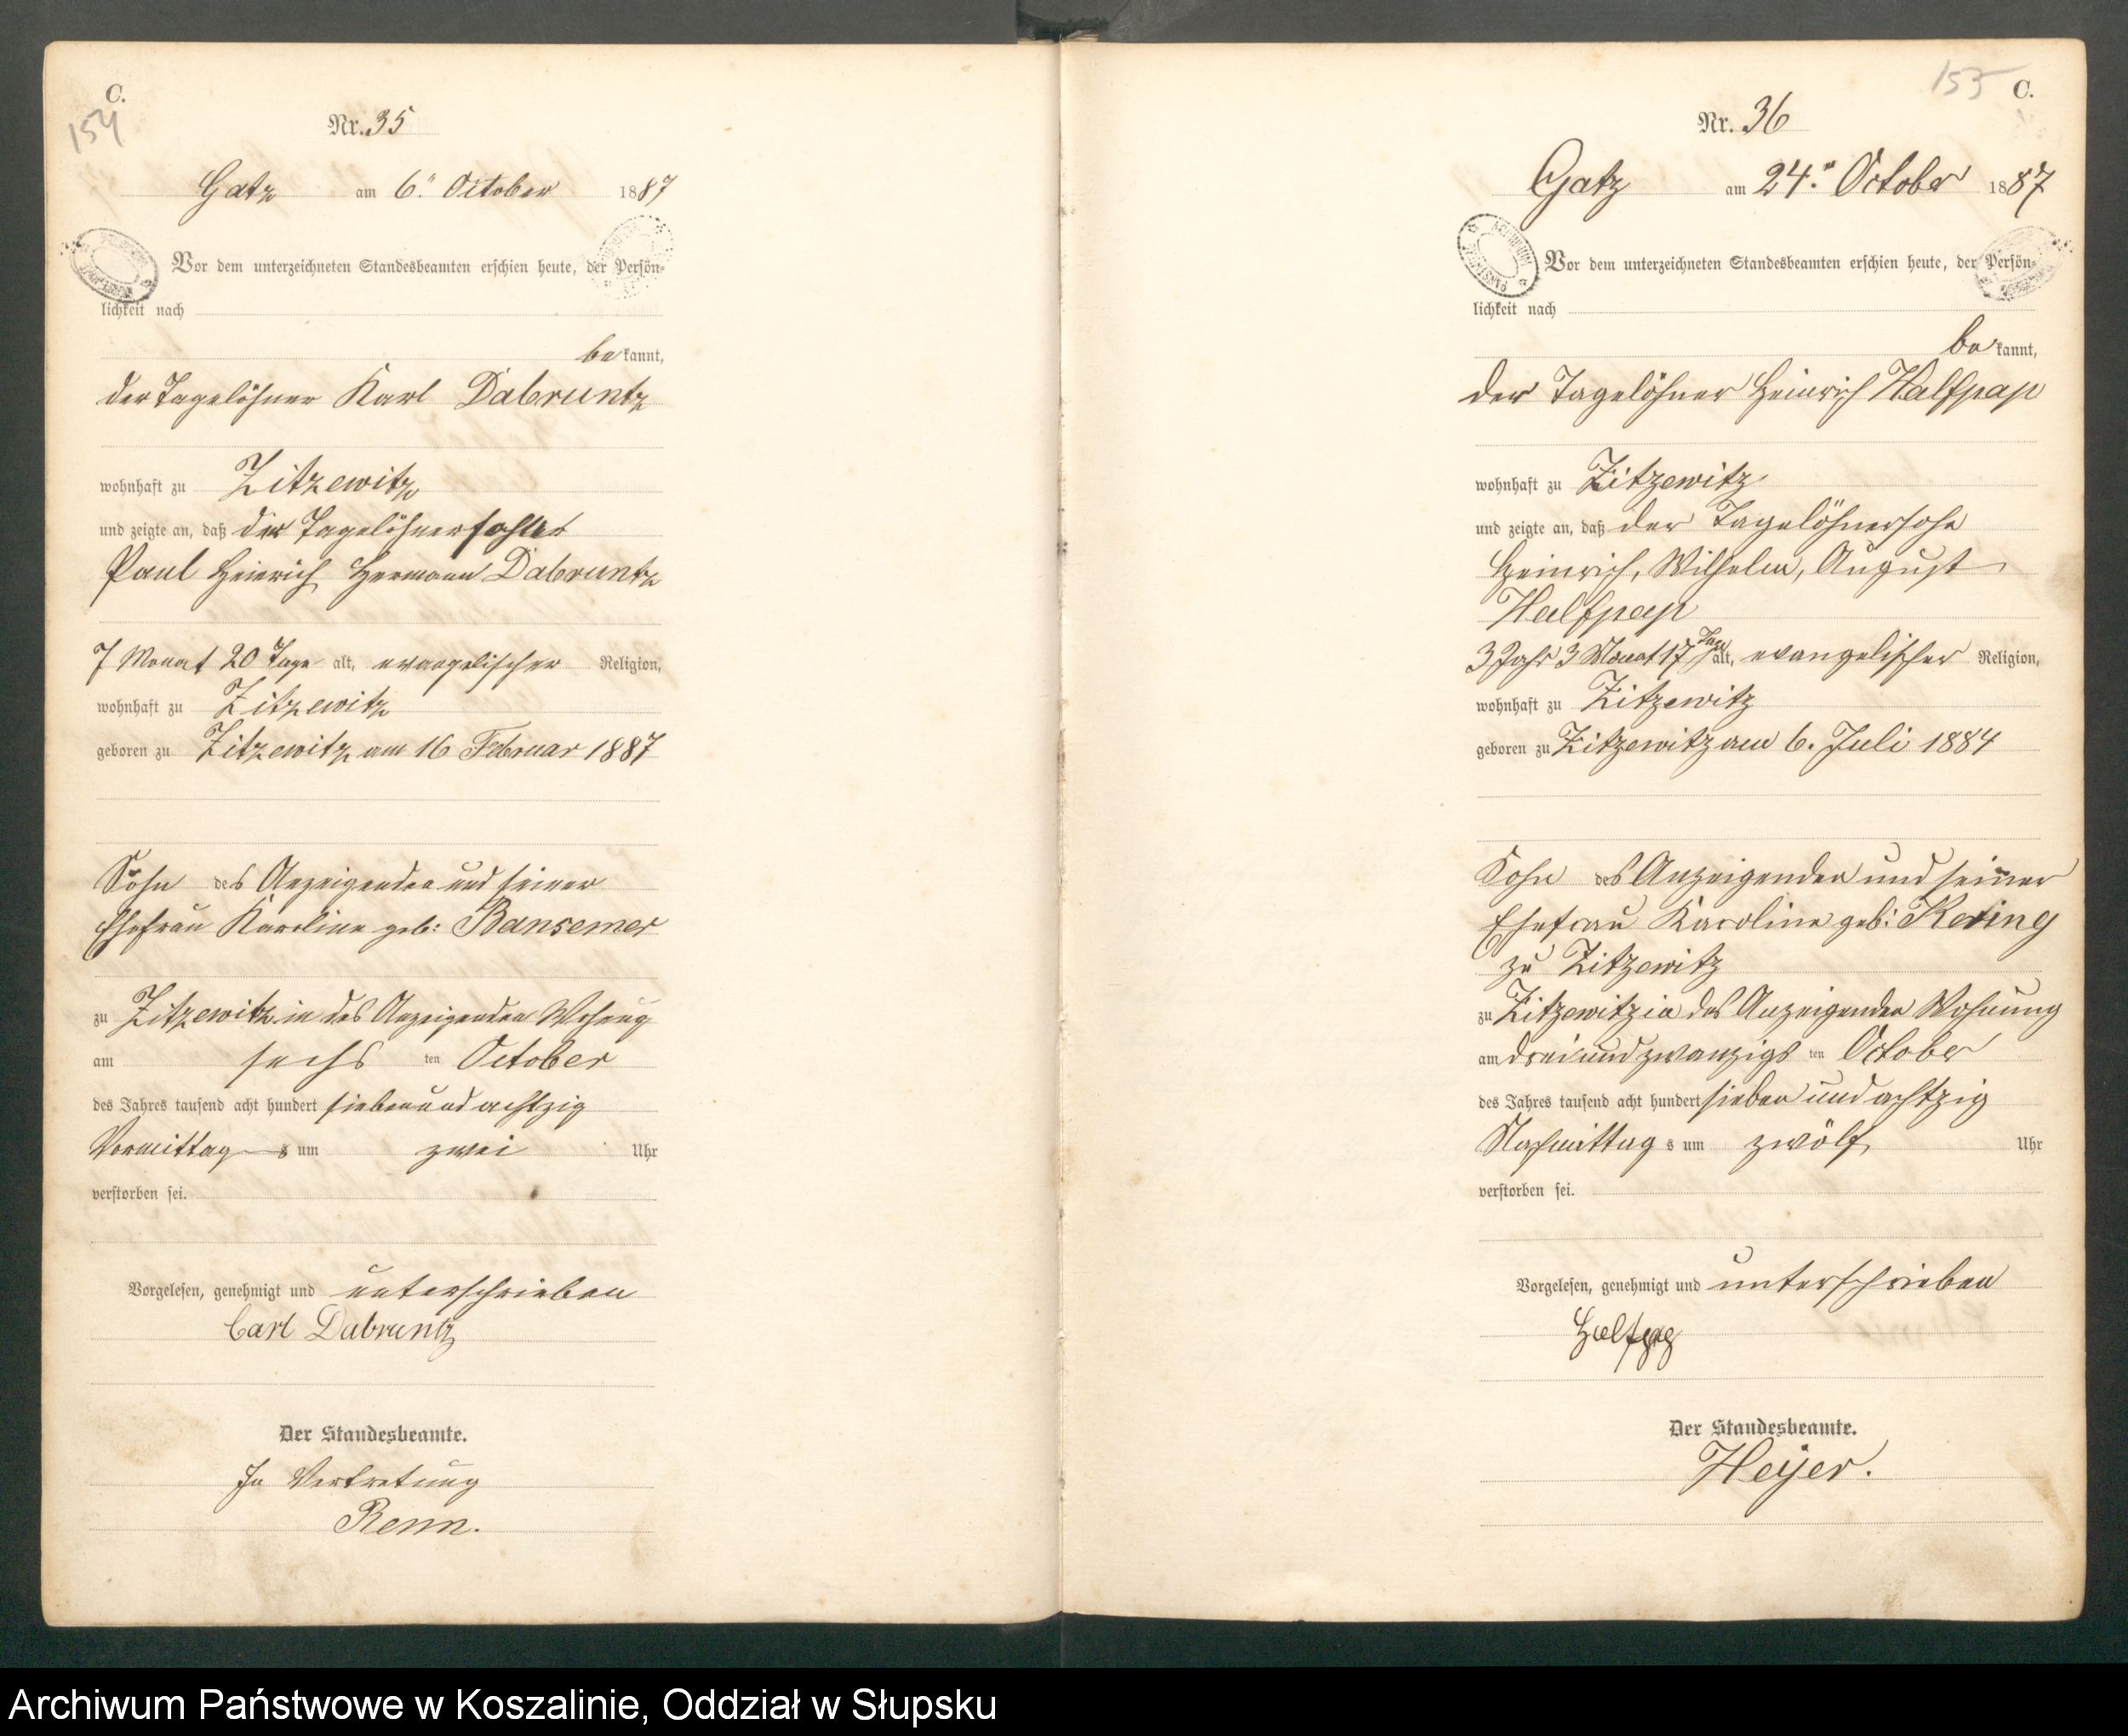 C.
154
Nr. 35
Gatz am 6. October 1887
Vor dem unterzeichneten Standesbeamten erschien heute, der Persön-
lichkeit nach
bekannt,
der Tagelöhner Karl Dabruntz
wohnhaft zu Zitzewitz
und zeigte an, daß der Tagelöhnersohn
Paul Heinrich Hermann Dabruntz
7 Monat 20 Tage alt, evangelischer Religion,
wohnhaft zu Zitzewitz
geboren zu Zitzewitz am 16 Februar 1887
Sohn des Anzeigenden und seiner
Ehefrau Karoline geb: Bansemer
zu Zitzewitz in des Anzeigenden Wohnung
am sechs ten October
des Jahres tausend acht hundert siebenundachtzig
Vormittag s um zwei Uhr
verstorben sei.
Vorgelesen, genehmigt und unterschrieben
Carl Dabruntz
Der Standesbeamte.
In Vertretung
Renn.
155
C.
Nr. 36
Gatz am 24. October 1887
Vor dem unterzeichneten Standesbeamten erschien heute, der Persön-
lichkeit nach
bekannt,
der Tagelöhner Heinrich Halfpap
wohnhaft zu Zitzewitz
und zeigte an, daß der Tagelöhnersohn
Heinrich, Wilhelm, August
Halfpap
3 Jahr 3 Monat 17 Tage alt, evangelischer Religion,
wohnhaft zu Zitzewitz
geboren zu Zitzewitz am 6. Juli 1884
Sohn des Anzeigenden und seiner
Ehefrau Karoline geb:
zu Zitzewitz
zu Zitzewitz in des Anzeigenden Wohnung
am dreiundzwanzigs ten October
des Jahres tausend acht hundert sieben und achtzig
Nachmittag s um zwölf Uhr
verstorben sei.
Vorgelesen, genehmigt und unterschrieben
Der Standesbeamte.
Heyer.
Archiwum Państwowe w Koszalinie, Oddział w Słupsku